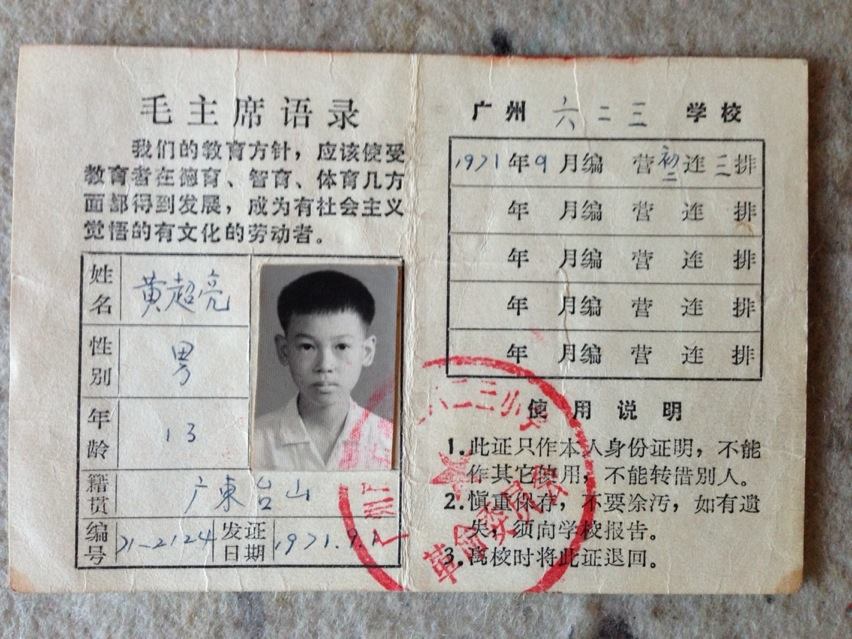 毛主席语录
我们的教育方针，应该使受
教育者在德育、智育、体育几方
面都得到发展，成为有社会主义
觉悟的有文化的劳动者。
姓名 黄超亮
性别 男
年龄 13
籍贯 广东台山
编号 71-2124 发证日期 1971.9.1
广州六二三学校
1971年9月编 营初二连三排
年 月编 营 连 排
年 月编 营 连 排
年 月编 营 连 排
年 月编 营 连 排
使用说明
1.此证只作本人身份证明，不能
作其它使用，不能转借别人。
2.慎重保存，不要涂污，如有遗
失，须向学校报告。
3.离校时将此证退回。
六二三小
革命委员会